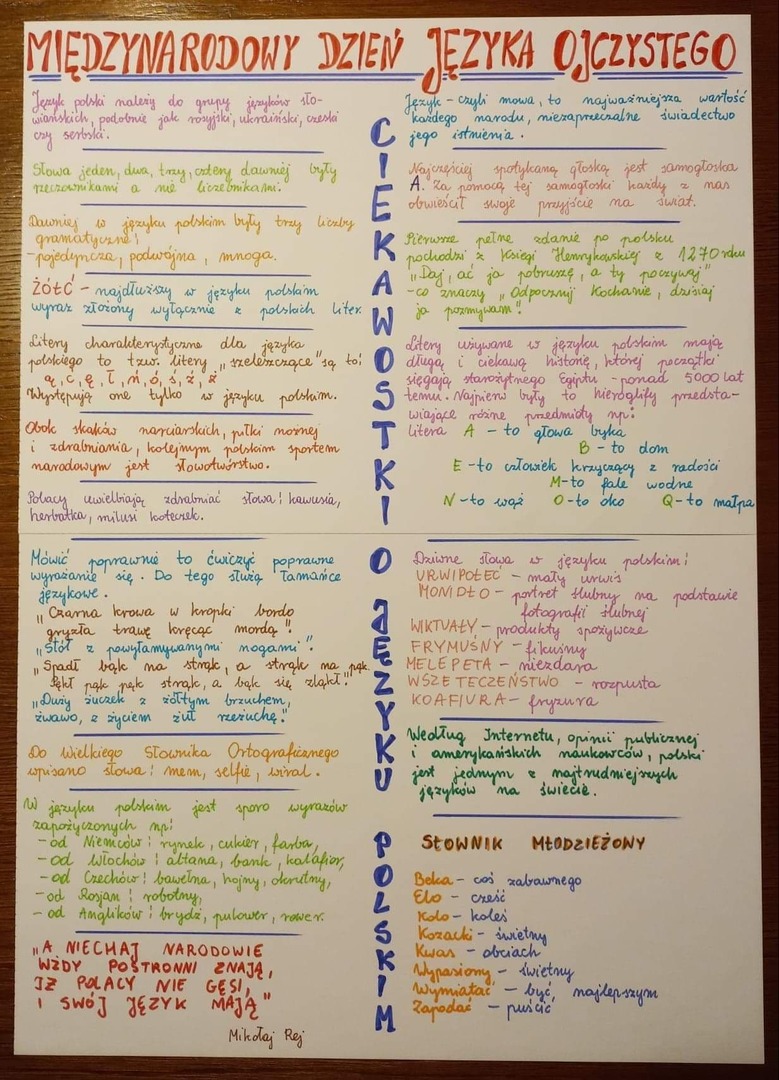 MIĘDZYNARODOWY DZIEŃ JĘZYKA OJCZYSTEGO
Język polski należy do grupy języków sło-
wiańskich, podobnie jak rosyjski, ukraiński, czeski
czy serbski.
Słowa jeden, dwa, trzy, cztery dawniej były
rzeczownikami a nie liczebnikami.
Dawniej w języku polskim były trzy liczby
gramatyczne:
- pojedyncza, podwójna, mnoga.
ŻÓŁĆ - najdłuższy w języku polskim
wyraz złożony wyłącznie z polskich liter.
Litery charakterystyczne dla języka
polskiego to tzw. litery „szeleszczące" są to:
ą, ć, ę, ł, ń, ó, ś, ź, ż
Występują one tylko w języku polskim.
Obok skoków narciarskich, piłki nożnej
i zdrabniania, kolejnym polskim sportem
narodowym jest słowotwórstwo.
Polacy uwielbiają zdrabniać słowa: kawusia,
herbatka, milusi koteczek.
Mówić poprawnie to ćwiczyć poprawne
wyrażanie się. Do tego służą łamańce
językowe.
„Czarna krowa w kropki bordo
gryzła trawę kręcąc mordą".
„Stół z powyłamywanymi nogami".
„Spadł bąk na strąk, a strąk na pąk.
Pękł pąk, pękł strąk, a bąk się zląkł".
„Duży żuczek z żółtym brzuchem,
żwawo, z życiem żuł rzeżuchę."
Do Wielkiego Słownika Ortograficznego
wpisano słowa: mem, selfie, wiral.
W języku polskim jest sporo wyrazów
zapożyczonych np:
- od Niemców: rynek, cukier, farba,
- od Włochów: altana, bank, kalafior,
- od Czechów: bawełna, hojny, okrutny,
- od Rosjan: robotny,
- od Anglików: brydż, pulower, rower.
„A NIECHAJ NARODOWIE
WŻDY POSTRONNI ZNAJĄ,
IŻ POLACY NIE GĘSI,
I SWÓJ JĘZYK MAJĄ"
Mikołaj Rej
CIEKAWOSTKI O JĘZYKU POLSKIM
Język - czyli mowa, to najważniejsza wartość
każdego narodu, niezaprzeczalne świadectwo
jego istnienia.
Najczęściej spotykaną głoską jest samogłoska
A. Za pomocą tej samogłoski każdy z nas
obwieścił swoje przyjście na świat.
Pierwsze pełne zdanie po polsku
pochodzi z Księgi Henrykowskiej z 1270 roku
„Daj, ać ja pobruszę, a ty poczywaj"
- co znaczy „Odpocznij Kochanie, dzisiaj
ja pozmywam".
Litery używane w języku polskim mają
długą i ciekawą historię, której początki
sięgają starożytnego Egiptu - ponad 5000 lat
temu. Najpierw były to hieroglify przedsta-
wiające różne przedmioty np:
litera A - to głowa byka
B - to dom
E - to człowiek krzyczący z radości
M - to fale wodne
N - to wąż O - to oko Q - to małpa
Dziwne słowa w języku polskim:
URWIPOŁEĆ - mały urwis
MONIDŁO - portret ślubny na podstawie
fotografii ślubnej
WIKTUAŁY - produkty spożywcze
FRYMUŚNY - fikuśny
MELEPETA - niezdara
WSZETECZEŃSTWO - rozpusta
KOAFIURA - fryzura
Według Internetu, opinii publicznej
i amerykańskich naukowców, polski
jest jednym z najtrudniejszych
języków na świecie.
SŁOWNIK MŁODZIEŻOWY
Beka - coś zabawnego
Elo - cześć
Kolo - koleś
Kozacki - świetny
Kwas - obciach
Wypasiony - świetny
Wymiatać - być najlepszym
Zapodać - puścić